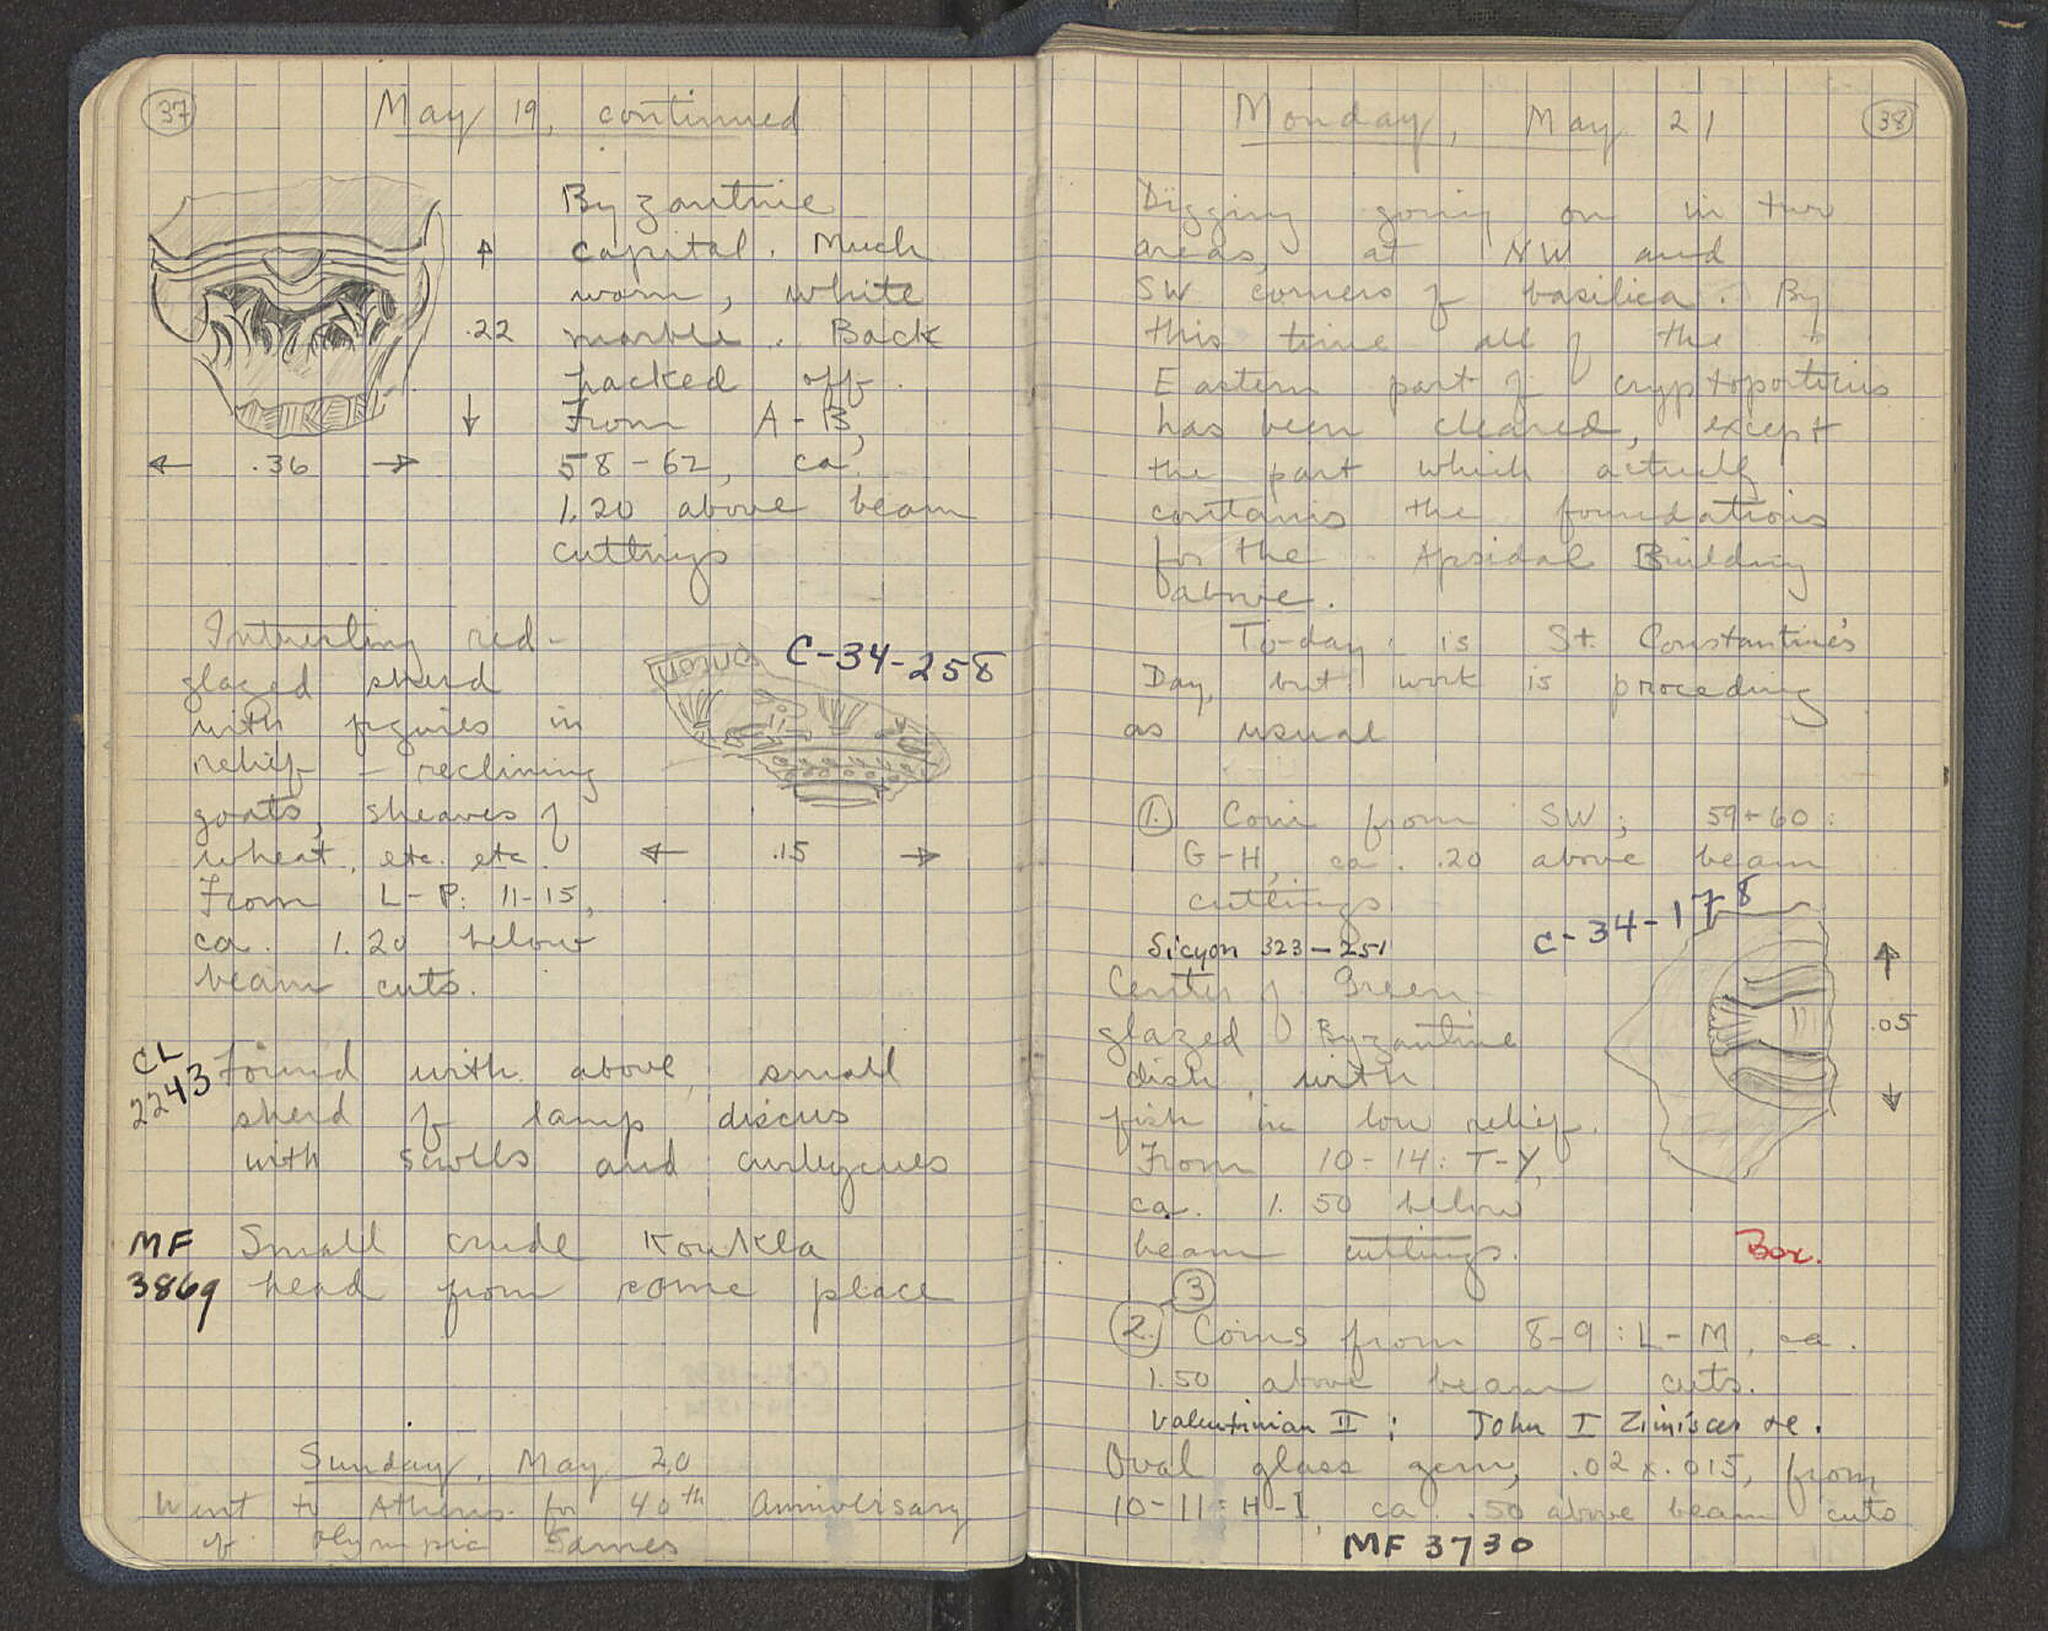 37
May 19, continued
Byzantine
capital. Much
worn, white
.22 marble. Back
hacked off.
From A-B,
.36 58-62, ca.
1.20 above beam
cuttings
Interesting red-
C-34-258
glazed sherd
with figures in
relief - reclining
goats, sheaves of
wheat, etc. etc.
.15
From L-P: 11-15,
ca. 1.20 below
beam cuts.
CL
2243
Found with above, small
sherd of lamp discus
with scrolls and curleycues
MF
3869
Small crude koukla
head from same place
Sunday, May 20
Went to Athens for 40th Anniversary
of Olympic Games
Monday, May 21
38
Digging going on in two
areas, at NW and
SW corners of basilica. By
this time all of the
Eastern part of cryptoporticus
has been cleared, except
the part which actually
contains the foundations
for the Apsidal Building
above.
To-day is St. Constantine's
Day, but work is proceding
as usual
1. Coin from SW; 59+60:
G-H, ca. .20 above beam
cuttings
Sicyon 323-251
C-34-178
Center of Green-
glazed Byzantine
.05
dish, with
fish in low relief.
From 10-14: T-Y,
ca. 1.50 below
beam cuttings.
Box.
3
2. Coins from 8-9: L-M, ca.
1.50 above beam cuts.
Valentinian II; John I Zimisces
Oval glass gem, .02 x .015, from
10-11: H-I, ca. .50 above beam cuts
MF 3730